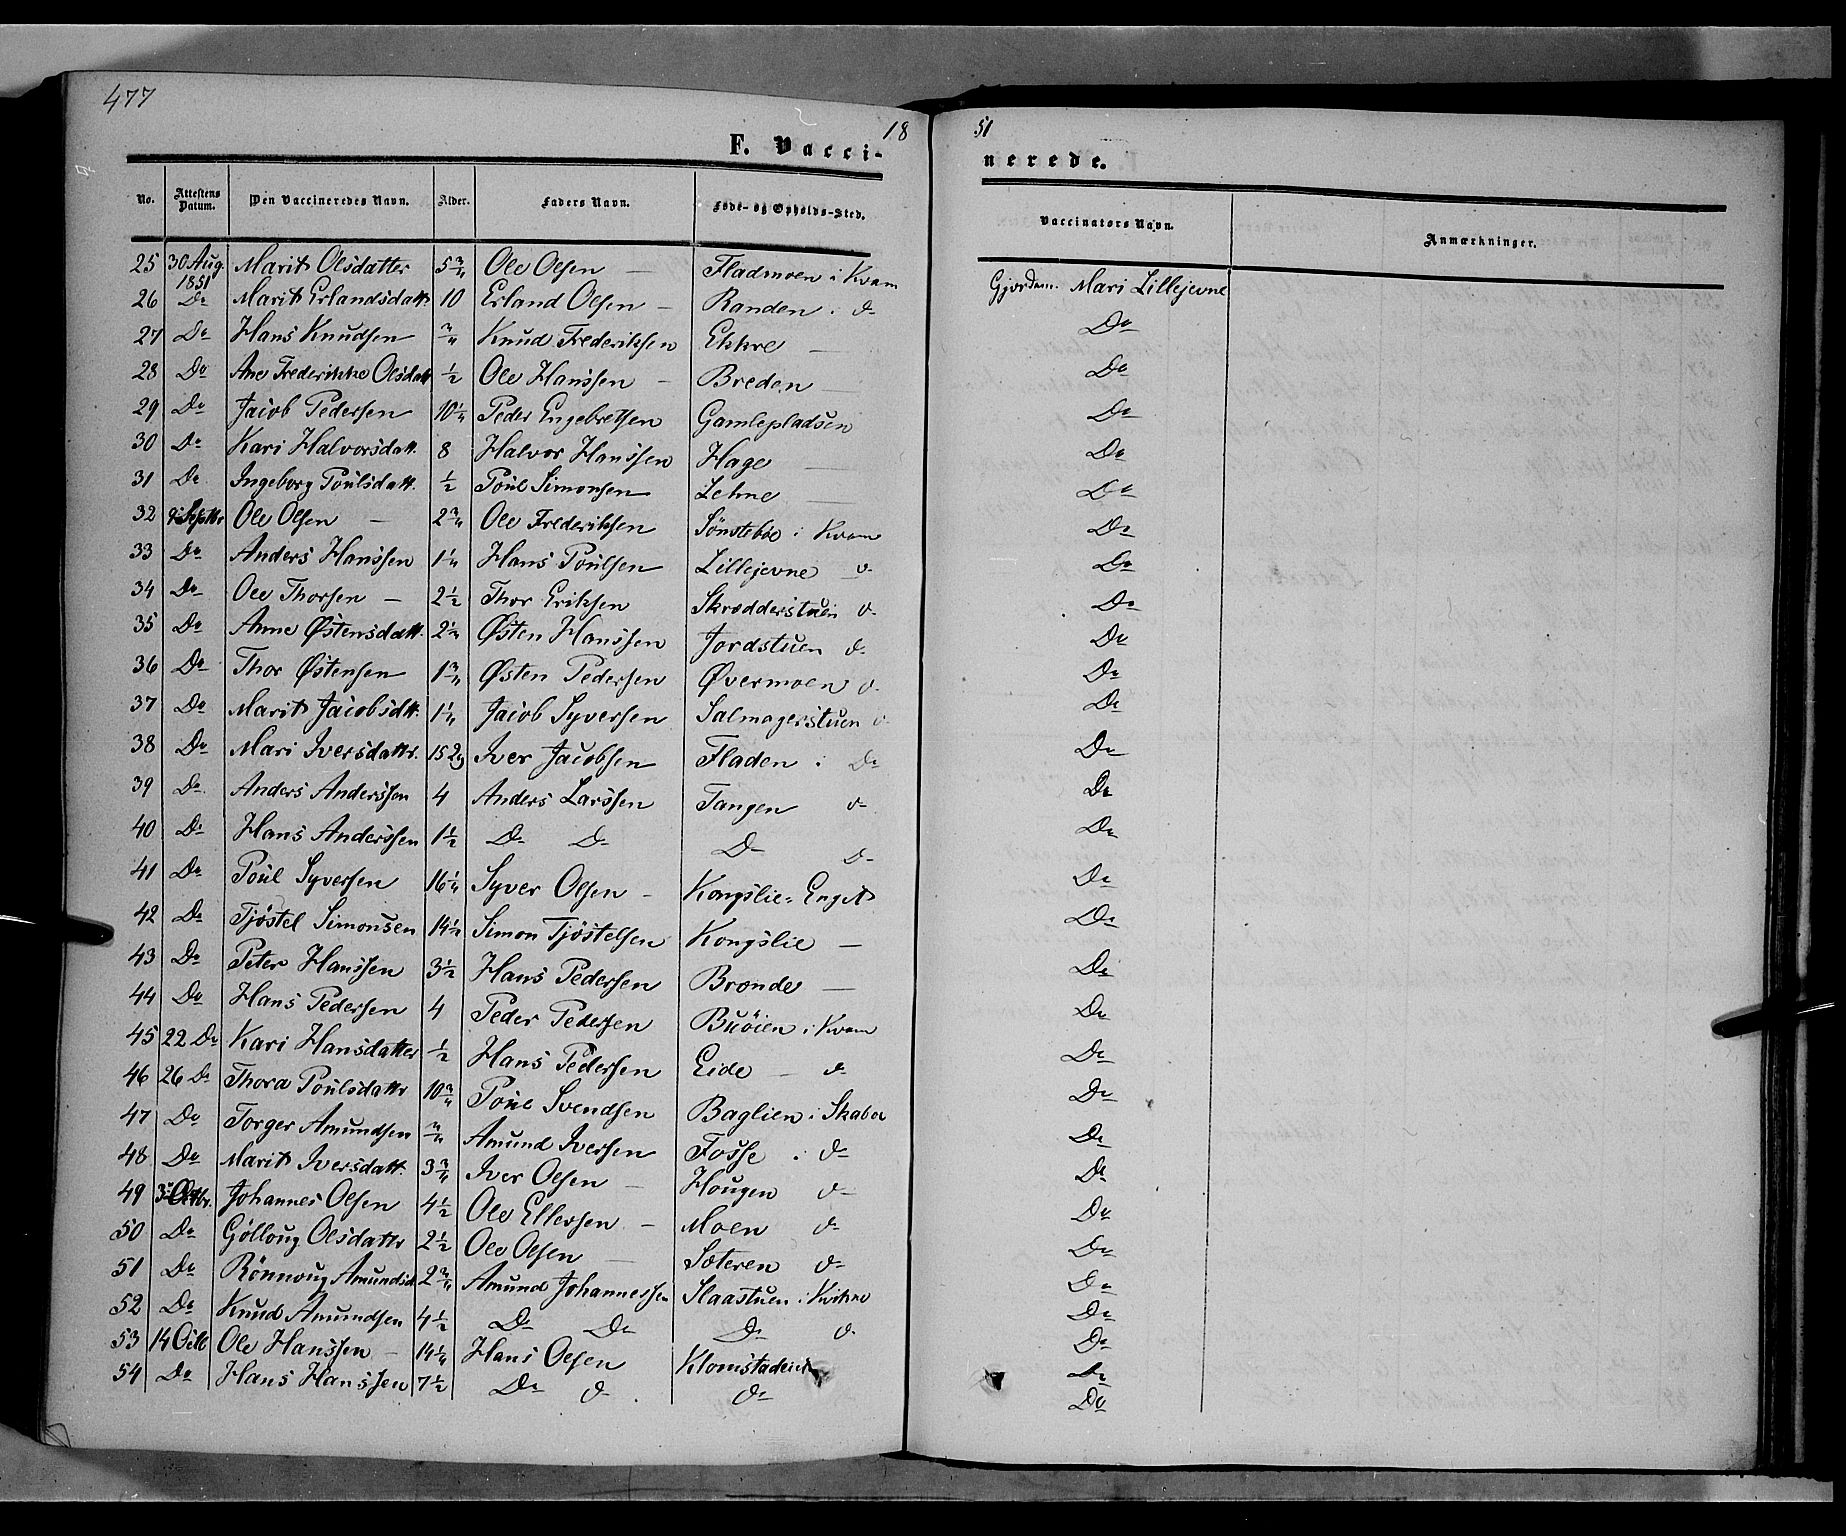 477
18 51
F. Vaccinerede.
No. Attestens Datum. Den Vaccineredes Navn. Alder. Faders Navn. Føde- og Opholds-Sted. Vaccinators Navn. Anmærkninger.
25 30 Aug. 1851 Marit Olsdatter 5 3/4 Ole Olsen — Fladmoen i Kvam Gjordem. Mari Lillejevne
26 Do Marit Erlandsdatt. 10 Erland Olsen — Randen i do Do
27 Do Hans Knudsen 3/4 Knud Frederiksen Ekkre — Do
28 Do Ane Frederikke Olsdatt 1/2 Ole Hanssen — Breden — Do
29 Do Jacob Pedersen 10 1/4 Peder Engebretsen Gamlepladsen Do
30 Do Kari Halvorsdatt. 8 Halvor Hanssen Hage — Do
31 Do Ingeborg Poulsdatt. 1/2 Poul Simonsen Lehne — Do
32 9 Septbr Ole Olsen — 2 3/4 Ole Frederiksen Sønstebøe i Kvam Do
33 Do Anders Hanssen 1 1/4 Hans Poulsen Lillejevne do Do
34 Do Ole Thorsen — 2 1/2 Thor Eriksen Skrædderstuen do Do
35 Do Anne Østensdatt. 2 1/4 Østen Hanssen Jordstuen do Do
36 Do Thor Østensen 1 3/4 Østen Pedersen Øvermoen do Do
37 Do Marit Jacobsdtt. 1 1/4 Jacob Syversen Salmagerstuen do Do
38 Do Mari Iversdattr. 15 2/4 Iver Jacobsen Fladen i Do Do
39 Do Anders Anderssen 4 Anders Larssen Tangen do Do
40 Do Hans Anderssen 1 1/2 Do Do Do Do Do
41 Do Poul Syversen 16 1/4 Syver Olsen — Kongslie-Enget Do
42 Do Tjöstel Simonsen 14 1/2 Simon Tjöstelsen Kongslie — Do
43 Do Peter Hanssen 3 1/2 Hans Pedersen Bronde — Do
44 Do Hans Pedersen 4 Peder Pedersen Buöien i Kvam Do
45 22 Do Kari Hansdatter 1/2 Hans Pedersen Eide — do Do
46 26 Do Thora Poulsdattr 10 3/4 Poul Svendsen Baglien i Skaboe Do
47 Do Torger Amundsen 3/4 Amund Iversen Fosse i do Do
48 Do Marit Iversdatt. 3 3/4 Iver Olsen — Hougen do Do
49 3 Octbr. Johannes Olsen 4 1/2 Ole Ellersen — Moen do Do
50 Do Gölloug Olsdattr 2 1/2 Ole Olsen — Sæteren do Do
51 Do Rönnoug Amundsd. 2 3/4 Amund Johannessen Slaastuen i Kvikne Do
52 Do Knud Amundsen 4 1/2 Do Do Do do Do
53 14 Octb Ole Hanssen — 14 1/4 Hans Olsen Klomstadeie Do
54 Do Hans Hanssen 7 1/2 Do do do Do
Do